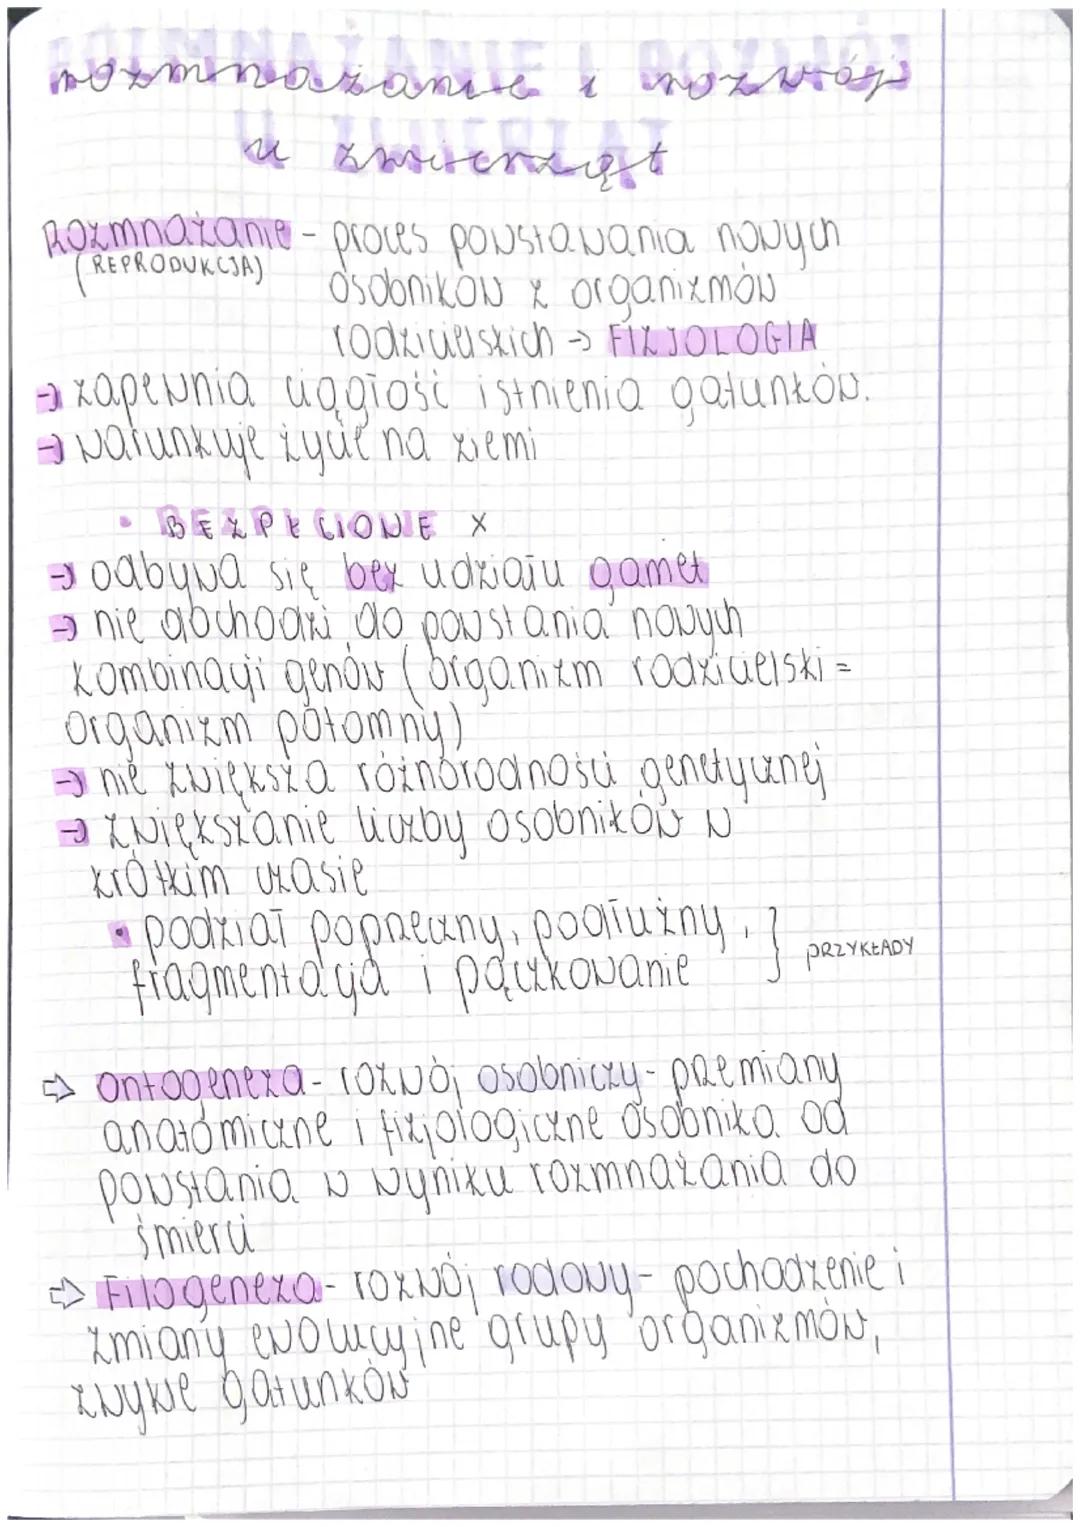 rozmnażanie i rozwój
u zwierząt
Rozmnażanie - proces powstawania nowych
(REPRODUKCJA)
osobników z organizmów
rodzicielskich → FIZJOLOGIA
→ zapewnia ciągłość istnienia gatunków.
→ warunkuje życie na ziemi
• BEZPŁCIOWE X
→ odbywa się bez udziału gamet
→ nie dochodzi do powstania nowych
kombinacji genów (organizm rodzicielski =
organizm potomny)
→ nie zwiększa różnorodności genetycznej
→ zwiększanie liczby osobników w
krótkim czasie
• podział poprzeczny, podłużny, } PRZYKŁADY
fragmentacja i pączkowanie
⇒ Ontogeneza - rozwój osobniczy - przemiany
anatomiczne i fizjologiczne osobnika od
powstania w wyniku rozmnażania do
śmierci
⇒ Filogeneza - rozwój rodowy - pochodzenie i
zmiany ewolucyjne grupy organizmów,
zwykle gatunków